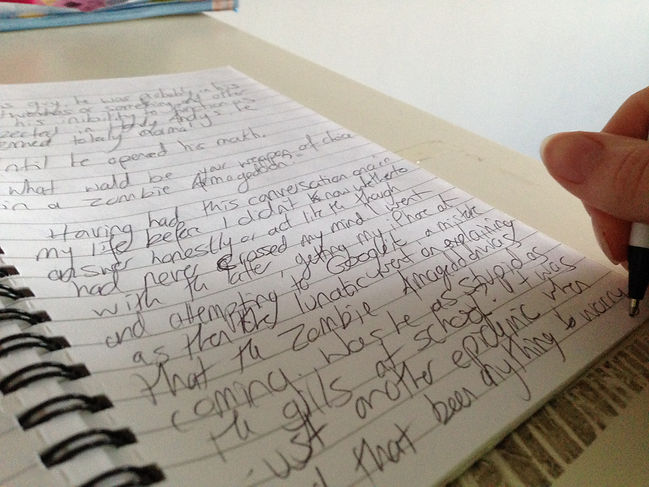 guy, he was probably in his
or something and other
his inibility to question
in Lady Andy's he
seemed totally normal.
until he opened his mouth.
what would be your weapon of choice
in a Zombie Armageddon
Having had this conversation again in
my life before I didn't know whether to
answer honestly or act like the though
had never crossed my mind. I went
with the later, getting my phone out
and attempting to Google it a mistake
as then the lunatic went on explaining
that the Zombie Amageddon was
coming. Was he as stupid as
the gills at school. It was
just another epidemic when
had that been anything to worry